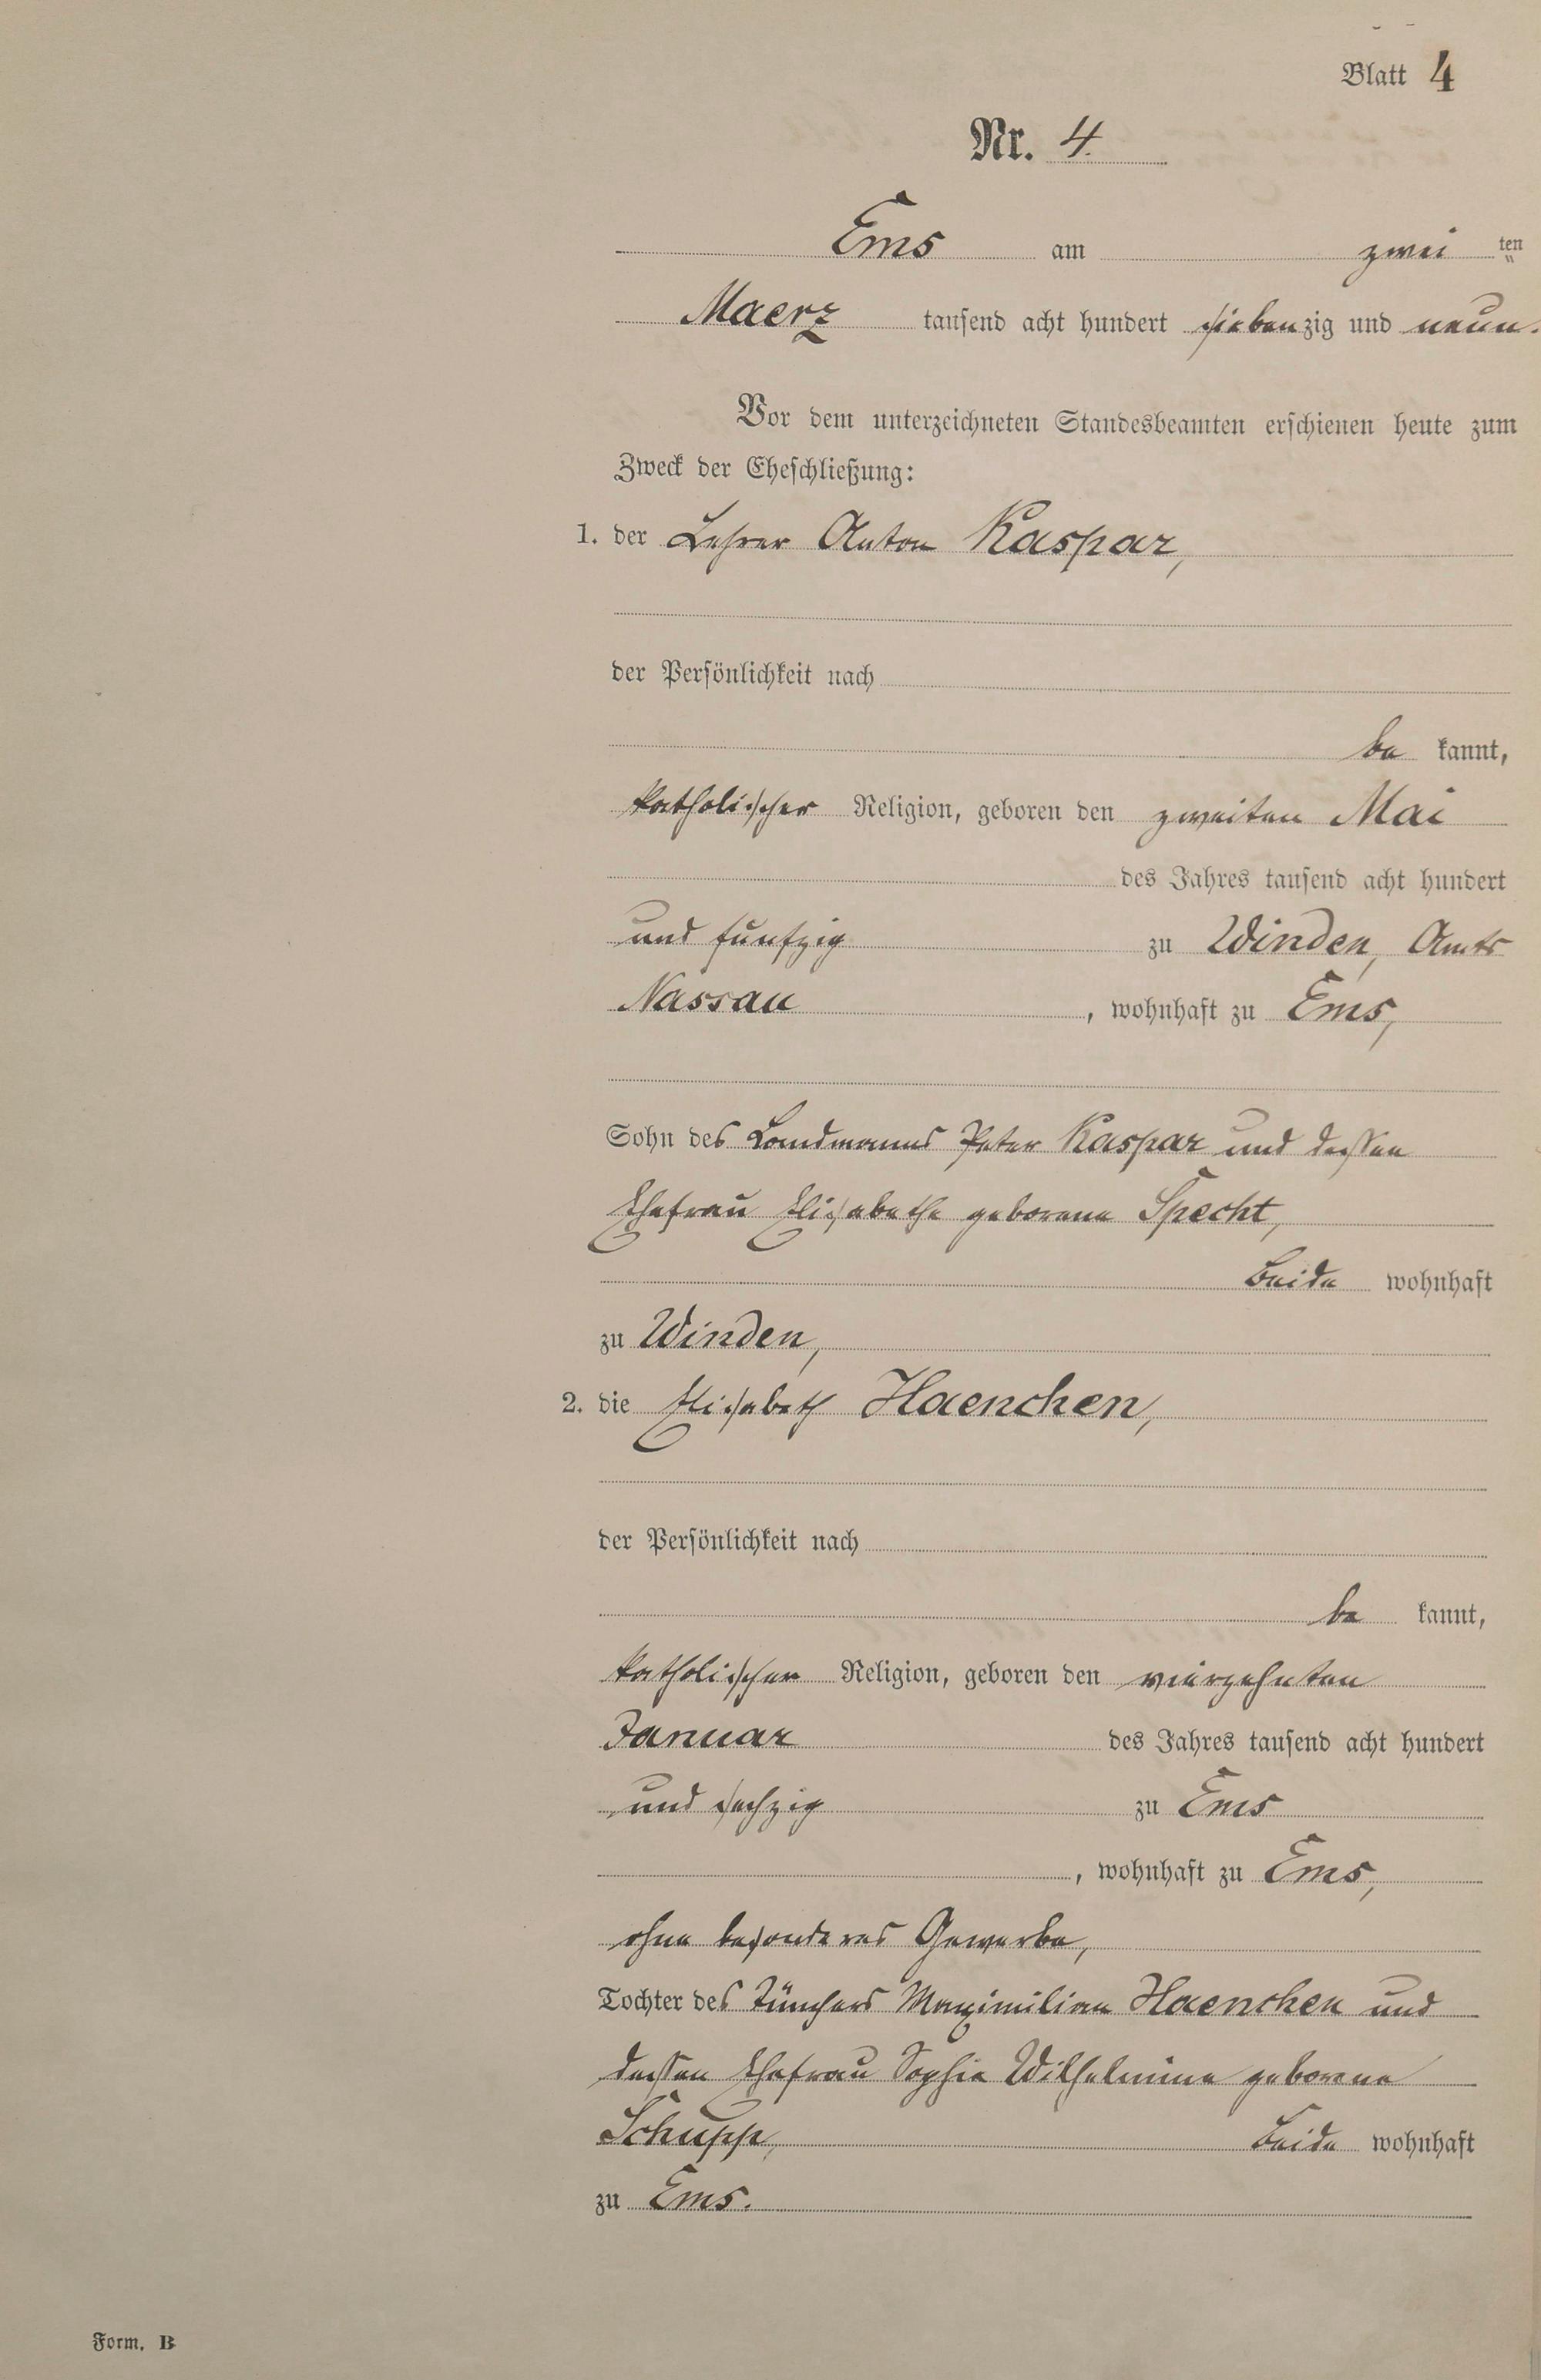 Blatt 4
Nr. 4.
Ems am zwei ten
Maerz tausend acht hundert siebenzig und neun.
Vor dem unterzeichneten Standesbeamten erschienen heute zum
Zweck der Eheschließung:
1. der Lehrer Anton Kaspar,
der Persönlichkeit nach
be kannt,
katholischer Religion, geboren den zweiten Mai
des Jahres tausend acht hundert
und fünfzig zu Winden, Amts
Nassau , wohnhaft zu Ems,
Sohn des Landmanns Peter Kaspar und dessen
Ehefrau Elisabetha geborene Specht,
beide wohnhaft
zu Winden,
2. die Elisabeth Haenchen,
der Persönlichkeit nach
be kannt,
katholischer Religion, geboren den vierzehnten
Januar des Jahres tausend acht hundert
und sechzig zu Ems
, wohnhaft zu Ems,
ohne besonderes Gewerbe,
Tochter des Tünchers Maximilian Haenchen und
dessen Ehefrau Sophia Wilhelmine geborene
Schupp, beide wohnhaft
zu Ems.
Form. B